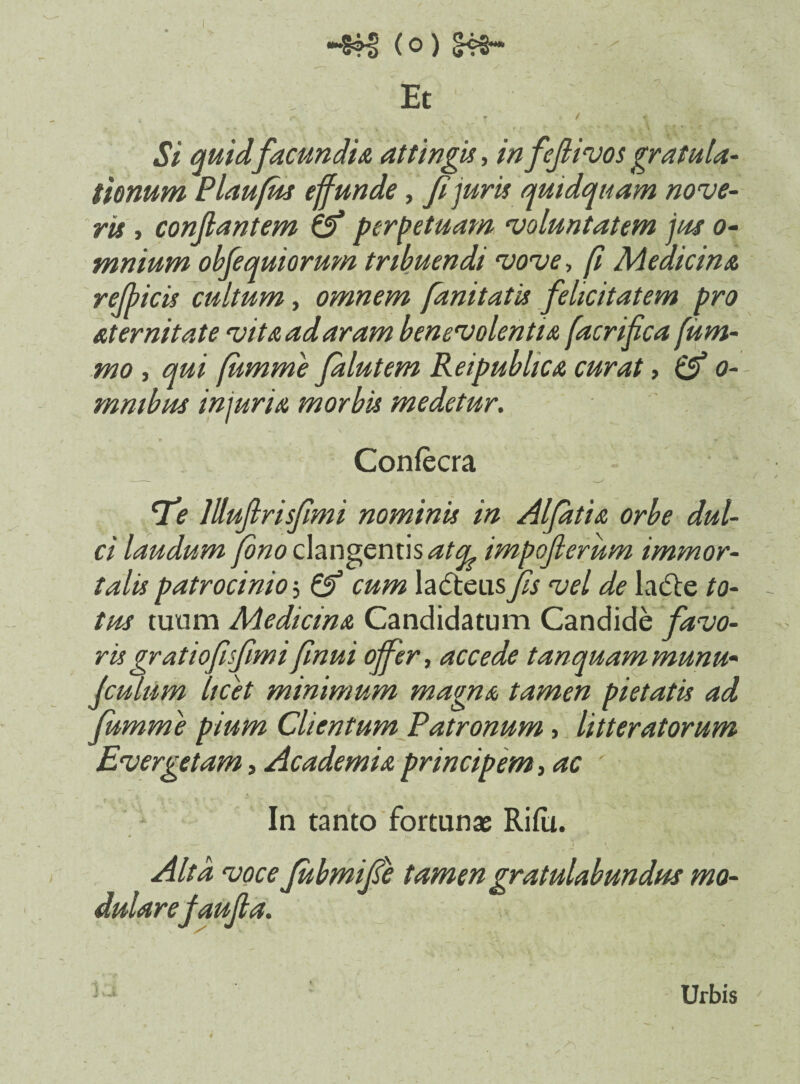 (o)
Et
Si quid facundiæ attingis, in feſtivos gratula-
tionum Plauſus effunde, ſi juris quidquam nove-
ris, conſtantem & perpetuam voluntatem jus o-
mnium obſequiorum tribuendi vove, ſi Medicinæ
reſpicis cultum, omnem ſanitatis felicitatem pro
æternitate vitæ ad aram benevolentiæ ſacrifica ſum-
mo, qui ſummè ſalutem Reipublicæ curat, & o-
mnibus injuriæ morbis medetur.
Conſecra
Te Illuſtrisſimi nominis in Alſatiæ orbe dul-
ci laudum ſono clangentis atq; impoſterùm immor-
talis patrocinio; & cum lacteus ſis vel de lacte to-
tus tuum Medicinæ Candidatum Candidè favo-
ris gratioſisſimi ſinui offer, accede tanquam munu-
ſculum licèt minimum magnæ tamen pietatis ad
ſummè pium Clientum Patronum, litteratorum
Evergetam, Academiæ principem, ac
In tanto fortunæ Riſu.
Altâ voce ſubmiſſè tamen gratulabundus mo-
dulare fauſta.
Urbis